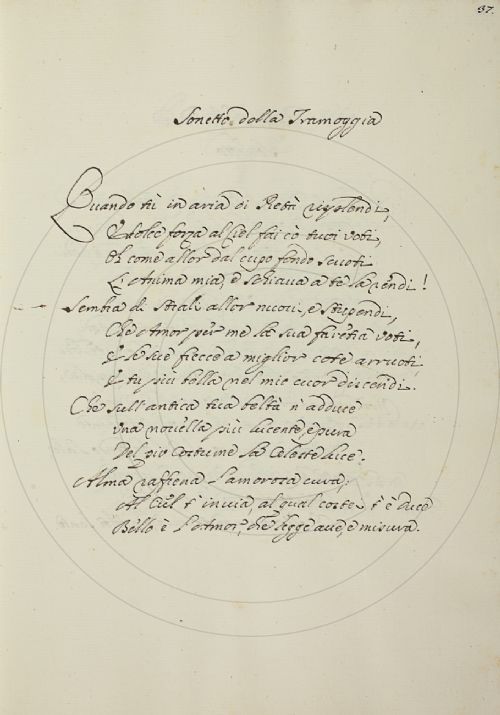 37.
Sonetto della Tramoggia
Quando tù in aria di Pietà risplendi,
E dolce forza al Ciel fai cò tuoi voti,
Oh come allor dal cupo fondo scuoti
L'Anima mia, e schiava a te la rendi!
Sembra di Strali allor nuovi, e stupendi,
Che Amor per me la sua faretra voti,
E le sue freccie a miglior cote arruoti
E tu più bella nel mio cuor discendi.
Che sull'antica tua beltà n'adduce
una novella più lucente, e pura
Del pio Costume la Celeste luce.
Alma raffrena l'amorosa cura;
Al Ciel t'invia, al qual costei t'è duce
Bello è l'Amor, che legge ave, e misura.